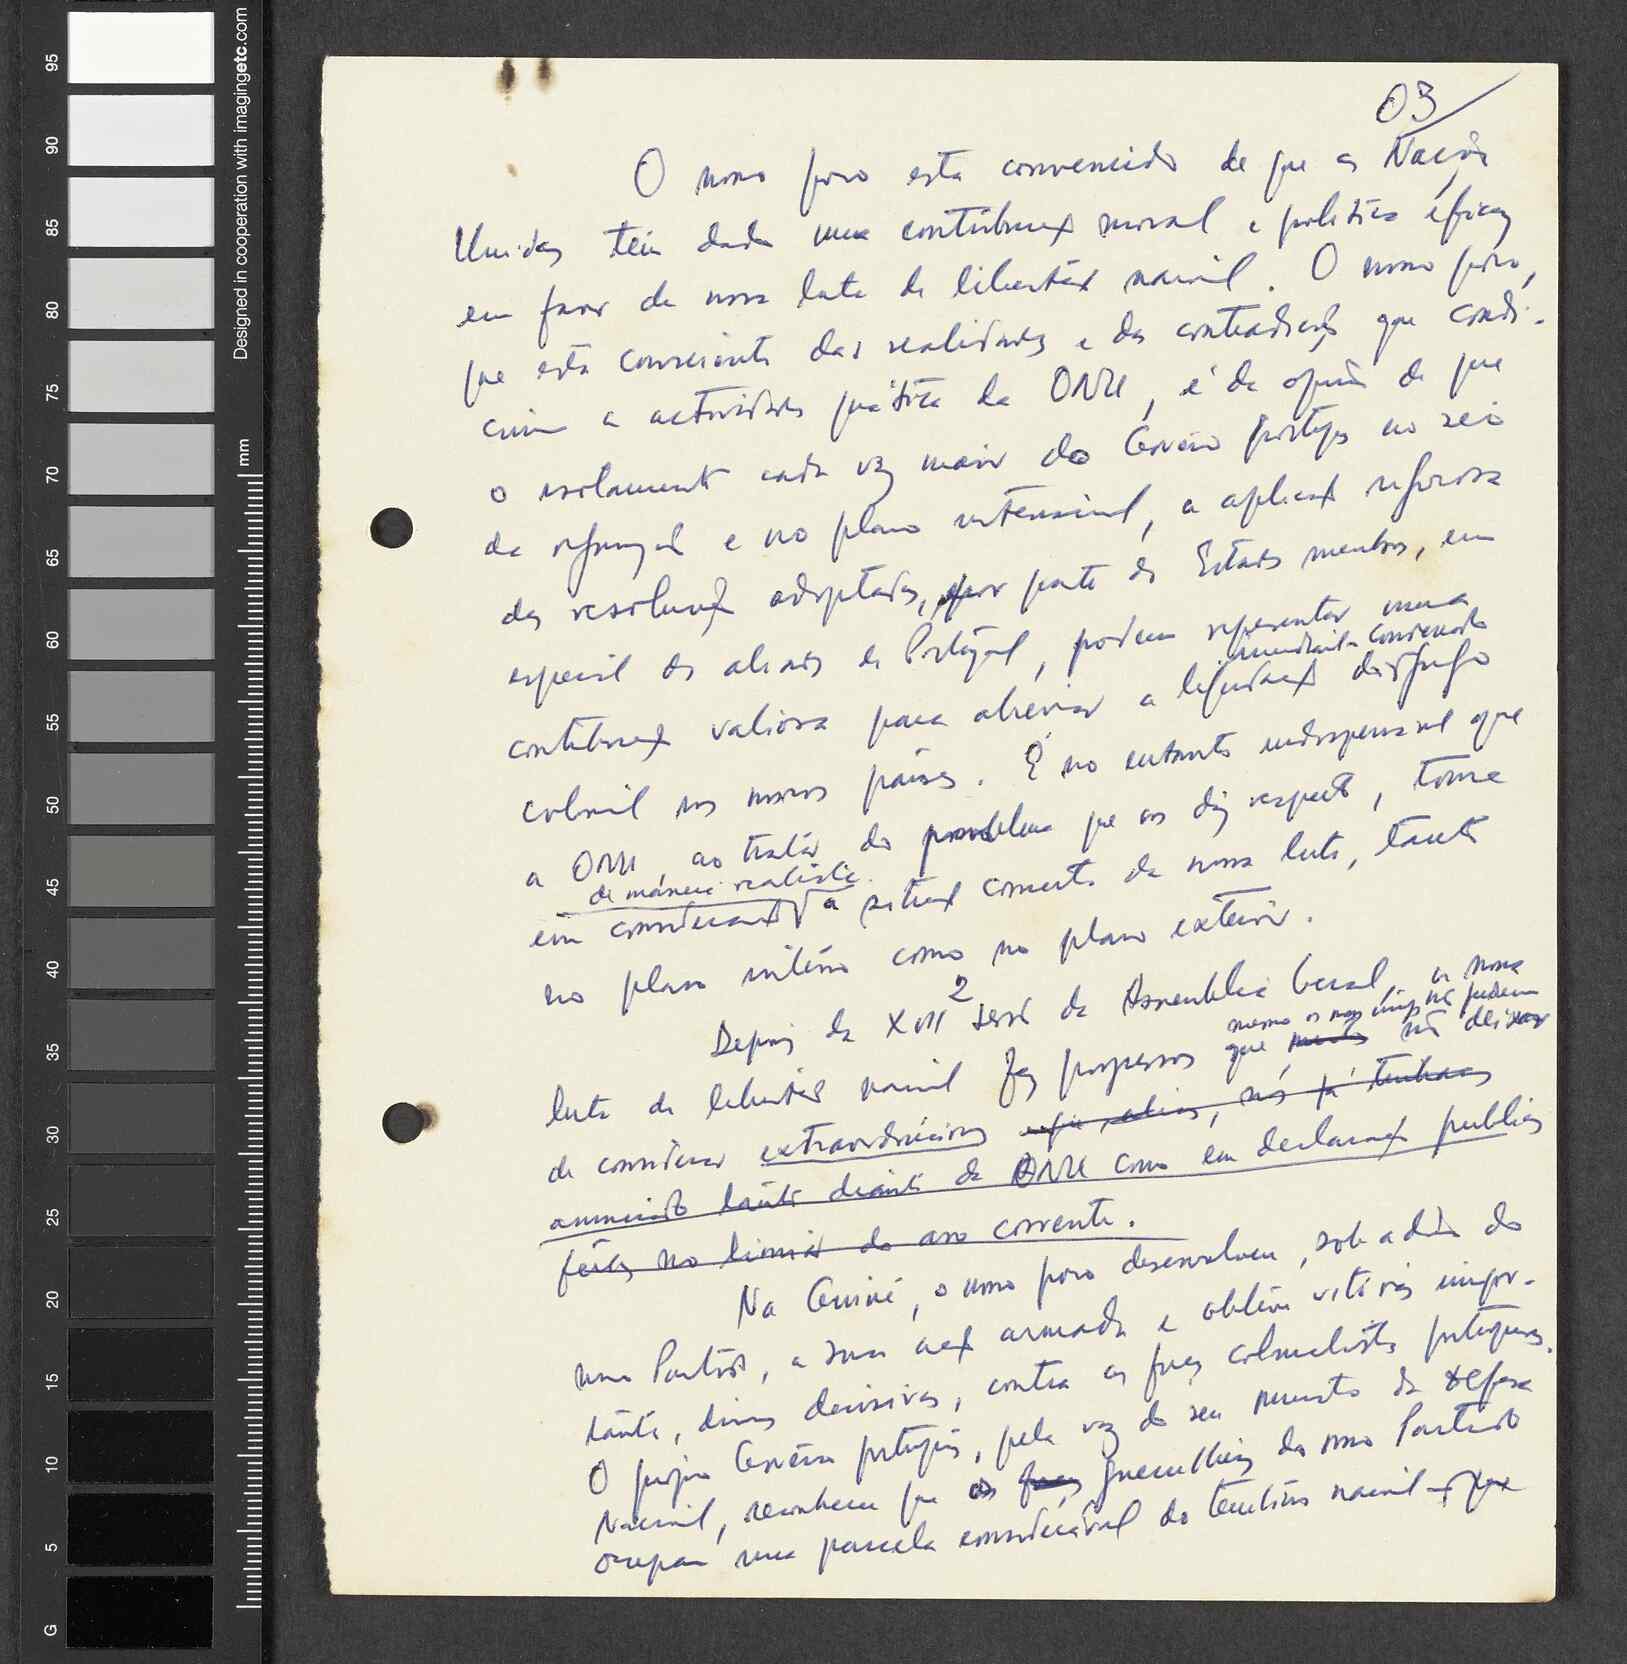 03
O nosso povo está convencido de que as Nações
Unidas têm dado uma contribuição moral e política eficaz
em favor da nossa luta de libertação nacional. O nosso povo,
que está consciente das realidades e das contradições que condi-
cionam a actividade prática da ONU, é da opinião de que
o isolamento cada vez maior do Govêrno português no seio
da organização e no plano internacional, a aplicação rigorosa
das resoluções adoptadas, por parte dos Estados membros, em
especial dos aliados de Portugal, podem representar uma
contribuição valiosa para abreviar a liquidação do jugo
colonial nos nossos países. É no entanto indispensável que
a ONU ao tratar do problema que nos diz respeito, tome
de maneira realista
em consideração a situação concreta da nossa luta, tanto
no plano interno como no plano exterior.
Depois da XVII sessão da Assembleia Geral, a nossa
mesmo os mais não podem
luta de libertação nacional fez progressos que não deixar
de considerar extraordinários aliás, nós já tenhamos
anunciado tanto diante da ONU como em declarações públicas
feitas no limiar do ano corrente.
Na Guiné, o nosso povo desenvolveu, sob a direcção do
nosso Partido, a sua acção armada e obteve vitórias impor-
tantes, decisivas, contra as forças colonialistas portuguesas.
O próprio Govêrno português, pela voz do seu ministro da Defesa
Nacional, reconheceu que os forças guerrilheiros do nosso Partido
ocupam uma parcela considerável do território nacional que
5 10 15 20 25 30 35 40 45 50 55 60 65 70 75 80 85 90 95
G
mm
Designed in cooperation with imagingetc.com